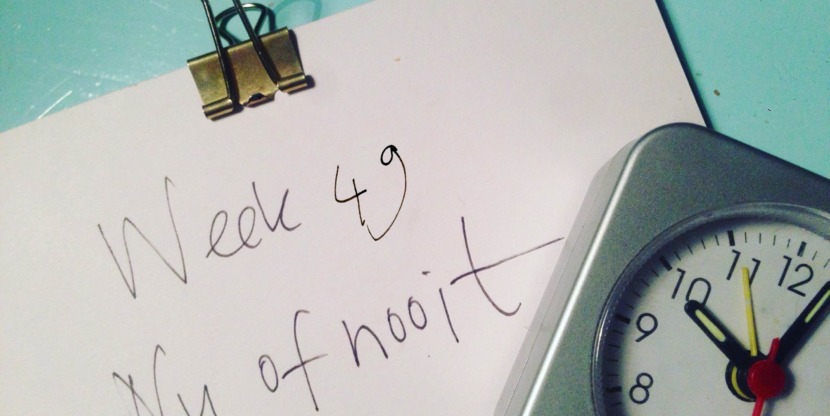 Week 49
Nu of nooit
10 11 12
9
8